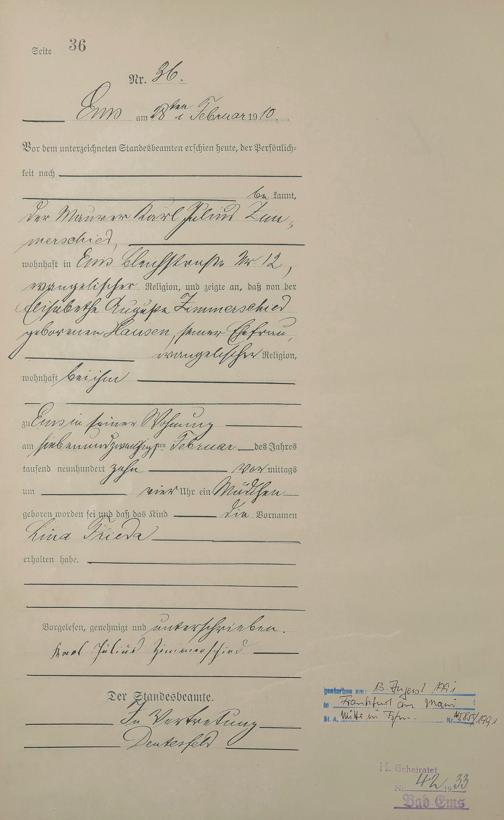 Seite 36
Nr. 36.
Ems am 28ten Februar 1910.
Vor dem unterzeichneten Standesbeamten erschien heute, der Persönlich-
keit nach
be kannt,
der Maurer Karl Julius Zim-
merschied,
wohnhaft in Ems Nr 12,
evangelischer Religion, und zeigte an, daß von der
Elisabethe Auguste Zimmerschied
geborenen Hausen, seiner Ehefrau,
evangelischer Religion,
wohnhaft bei ihm
zu Ems in seiner Wohnung
am siebenundzwanzigsten Februar des Jahres
tausend neunhundert zehn Vor mittags
um vier Uhr ein Mädchen
geboren worden sei und daß das Kind die Vornamen
Lina Frieda
erhalten habe.
Vorgelesen, genehmigt und unterschrieben.
Karl Julius Zimmerschied
Der Standesbeamte.
In Vertretung
gestorben am: 13. August 1991
in Frankfurt am Main
St. A. Mitte in Ffm. Nr.
H. Geheiratet
Nr. 42 1933
Bad Ems